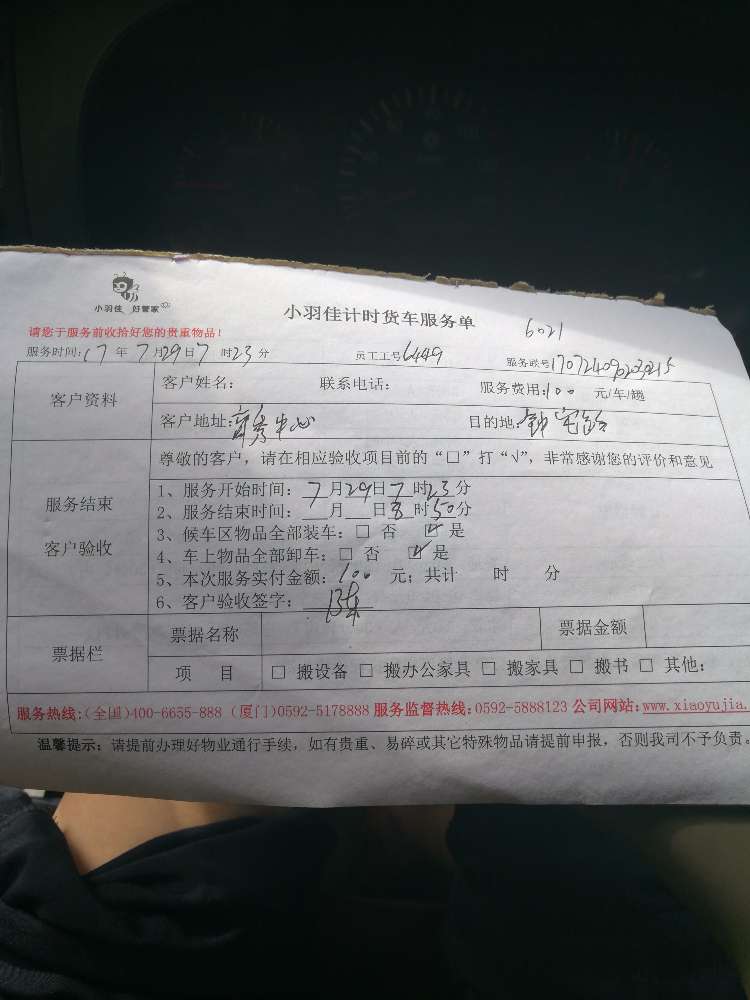 小羽佳 好管家
小羽佳计时货车服务单
6021
请您于服务前收拾好您的贵重物品！
服务时间:17年7月29日7时23分 员工工号6449 服务账号
客户资料
客户姓名： 联系电话： 服务费用:100 元/车/趟
客户地址:商务中心 目的地:
服务结束
客户验收
尊敬的客户，请在相应验收项目前的“□”打“√”，非常感谢您的评价和意见
1、服务开始时间：7月29日7时23分
2、服务结束时间：月 日8时50分
3、候车区物品全部装车：□ 否 ☑ 是
4、车上物品全部卸车：□ 否 ☑ 是
5、本次服务实付金额：100 元；共计 时 分
6、客户验收签字：
票据栏
票据名称 票据金额
项 目 □ 搬设备 □ 搬办公家具 □ 搬家具 □ 搬书 □ 其他：
服务热线:(全国)400-6655-888 (厦门)0592-5178888 服务监督热线:0592-5888123 公司网站:www.xiaoyujia.
温馨提示：请提前办理好物业通行手续，如有贵重、易碎或其它特殊物品请提前申报，否则我司不予负责。